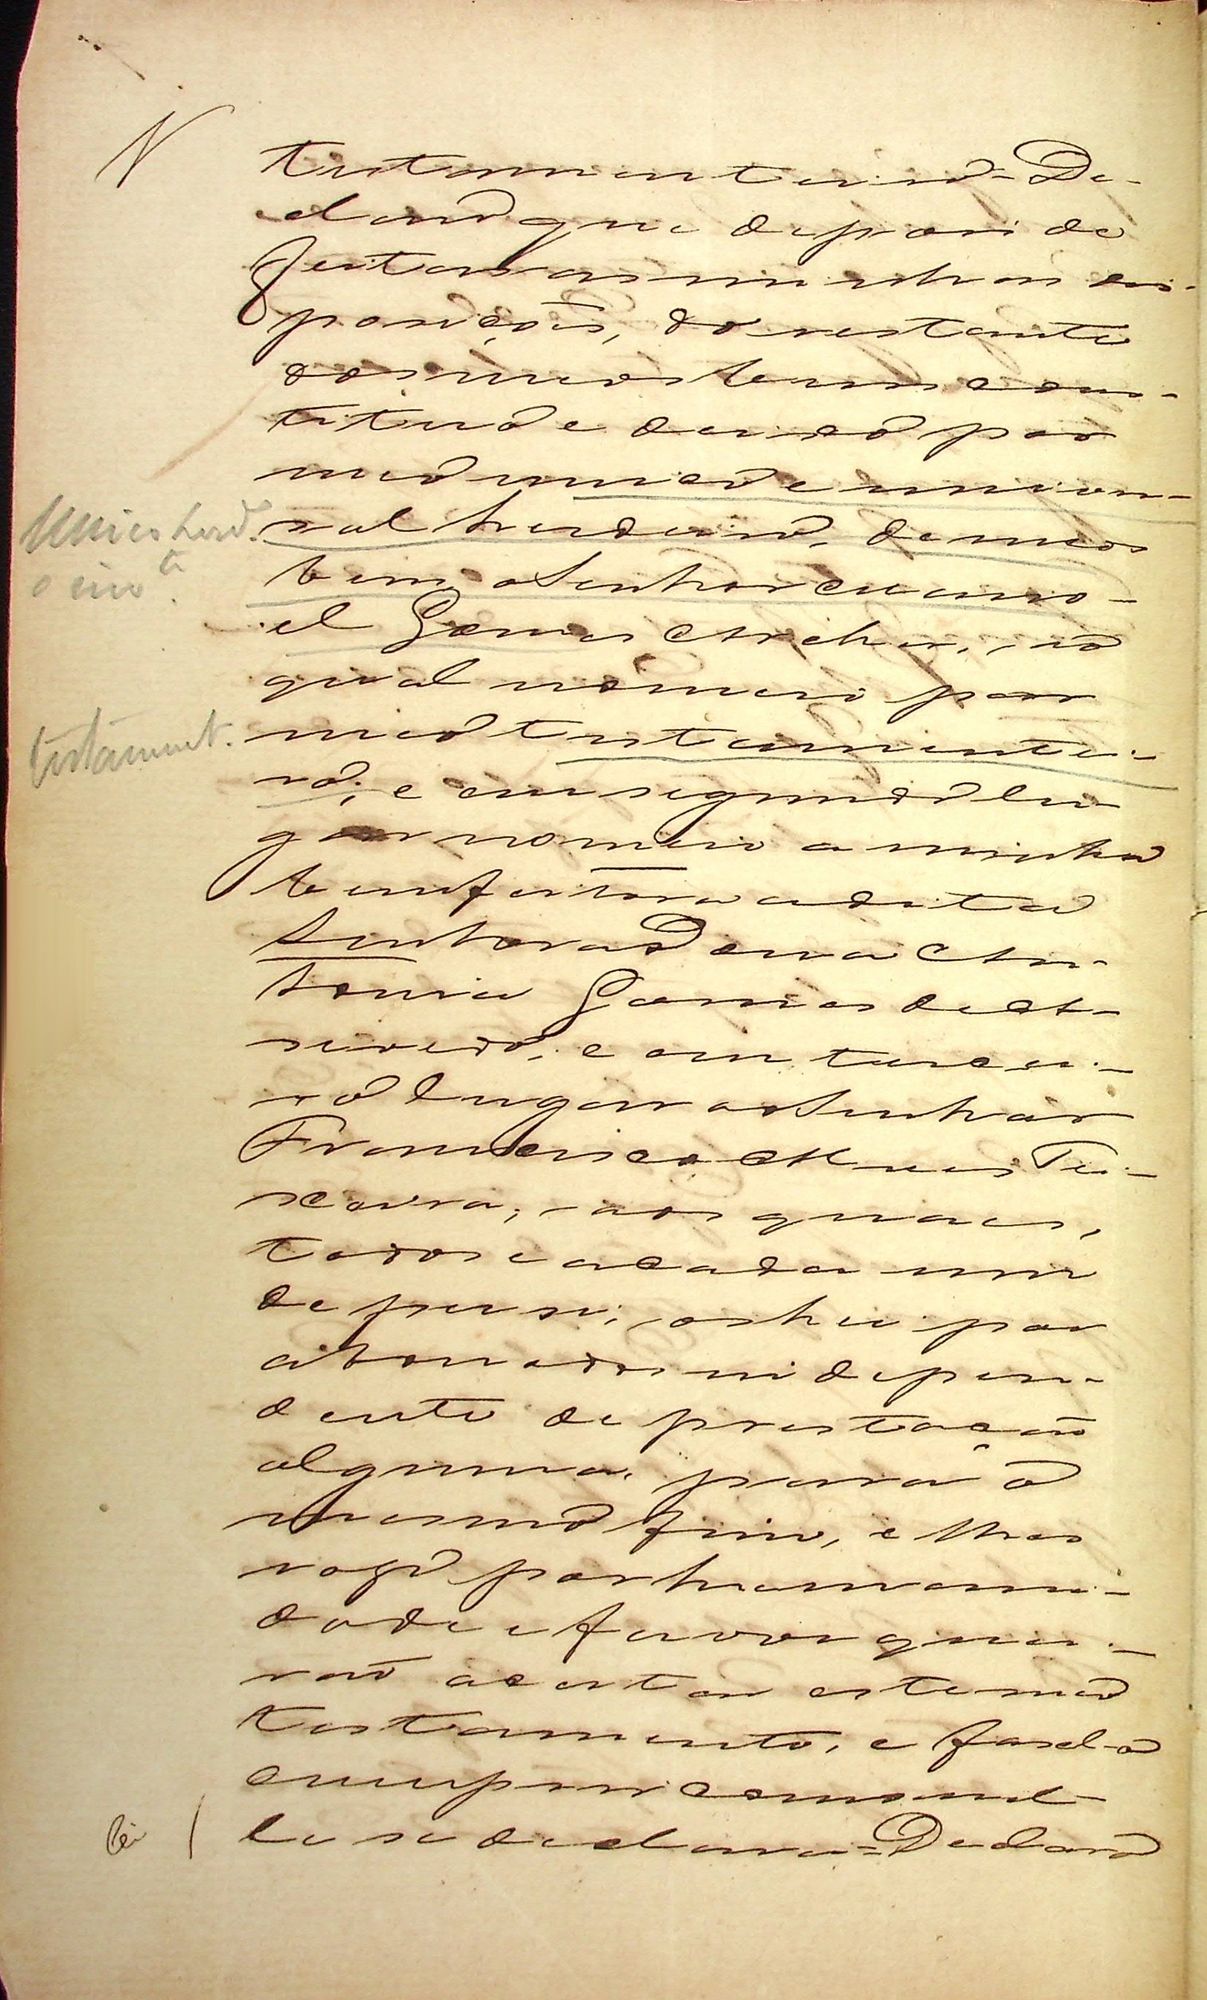 testamenteiro = De-
claro que depois de
feitas as minhas dis-
posições, do restante
dos meus bens cons-
titúo e deixo por
meo unico e univer-
sal herdeiro, de meos
bens o Senhor Mano-
el Gomes Archer, ao
qual nomeio por
meo testamentei-
ro; e em segundo lu
gar nomeio a minha
bemfeitora a dita
Senhora Dona An-
tonia Gomes de A-
sevedo; e em tercei-
ro lugar ao Senhor
Francisco Alves Tei-
xeira; aos quaes,
todos e a cada um
de per si, os hei por
abonados indepen-
dente de prestação
alguma, para o
mesmo fim, e lhes
rogo por humani-
dade e favor quei-
rão aceitar este meo
testamento, e fasel-o
cumprir como nel-
le se declara = Declaro
Unico herdro.
o inv
testament.